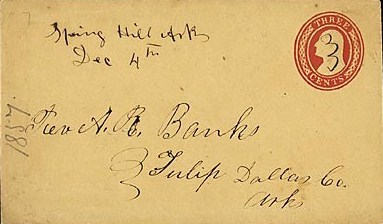 Spring Hill Arks
Dec 4th
THREE
3
CENTS
1857.
Rev A. R. Banks
Tulip Dallas Co.
Arks